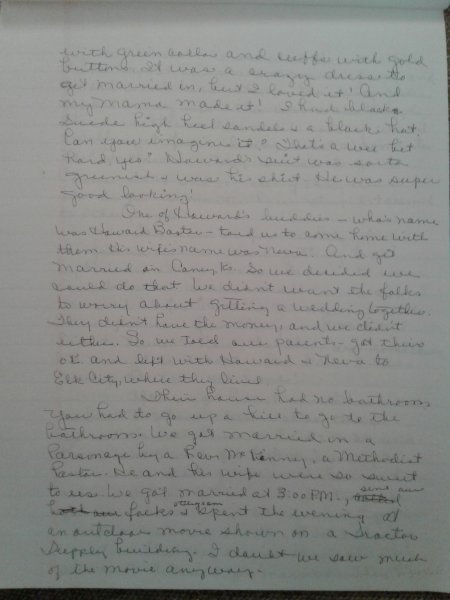 with green collar and cuffs with gold
buttons. It was a crazy dress to
get married in, but I loved it! And
my Mama made it! I had black
Suede high heel sandels & a black hat.
Can you imagine it? That's a wee bit
Kard, yes? Howard's suit was sorta
greenish & was his shirt. He was super
good looking!
One of Howard's buddies - who's name
was Howard Baxter - told us to come home with
them. His wife's name was Neva. And get
married in Caney, Ks. So we decided we
could do that. We didn't want the folks
to worry about getting a wedding together.
They didn't have the money, and we didn't
either. So, we told our parents - got their
ok. and left with Howard & Neva to
Elk City, where they lived.
Their house had no bathroom
You had to go up a hill to go to the
bathroom. We got married in a
Parsonage by a Rev. McKinney, a Methodist
Pastor. He and his wife were so sweet
to us. We got married at 3:00 P.M., sent our
folks & spent the evening at
an outdoor movie shown on a Tractor
Supply building. I doubt we saw much
of the movie anyway.